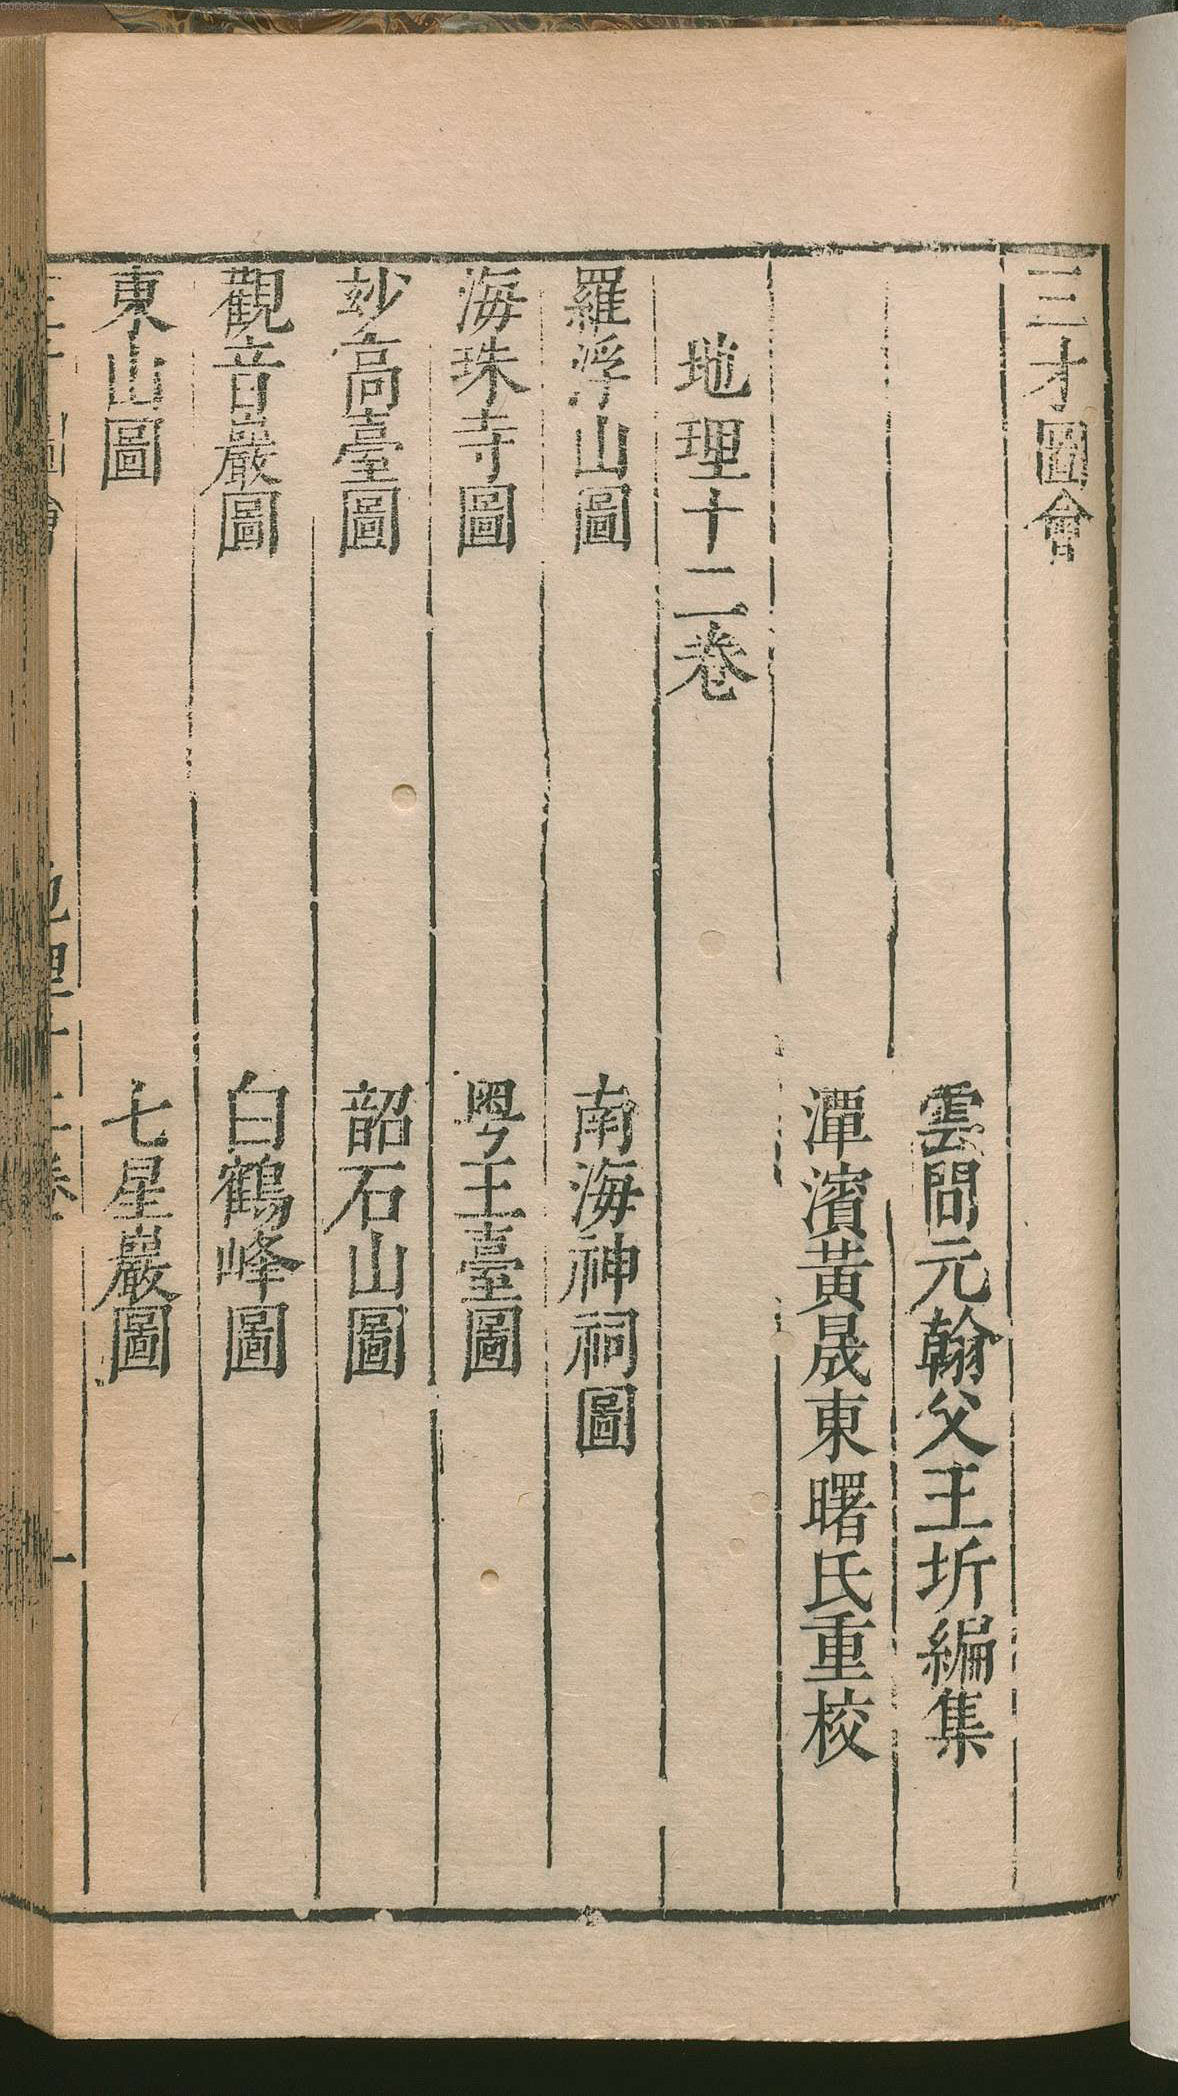 三才圖會
雲間元翰父王圻編集
潭濱黃晟東曙氏重校
地理十二卷
羅浮山圖
南海神祠圖
海珠寺圖
粤王臺圖
妙高臺圖
韶石山圖
觀音巖圖
白鶴峰圖
東山圖
七星巖圖
00060324